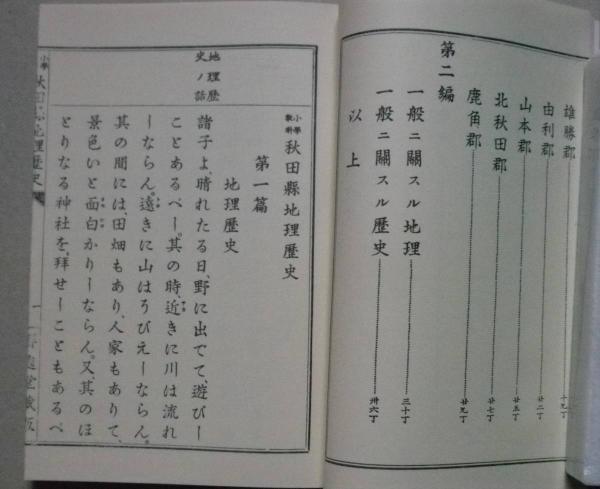 雄勝郡………十九丁
由利郡………廿二丁
山本郡………廿五丁
北秋田郡………廿七丁
鹿角郡………廿九丁
第二編
一般ニ關スル地理………三十丁
一般ニ關スル歷史………卅六丁
以上
小學敎科秋田縣地理歷史
第一篇
地理歷史
地理歷史ノ話
諸子よ、晴れたる日、野に出でて、遊びし
ことあるべし。其の時、近きに川は流れ
しならん。遠きに山はろびえしならん。
其の間には、田畑もあり、人家もありて、
景色いと面白かりしならん。又、其のほ
とりなる神社を、拜せしこともあるべ
小學 秋田縣地理歷史